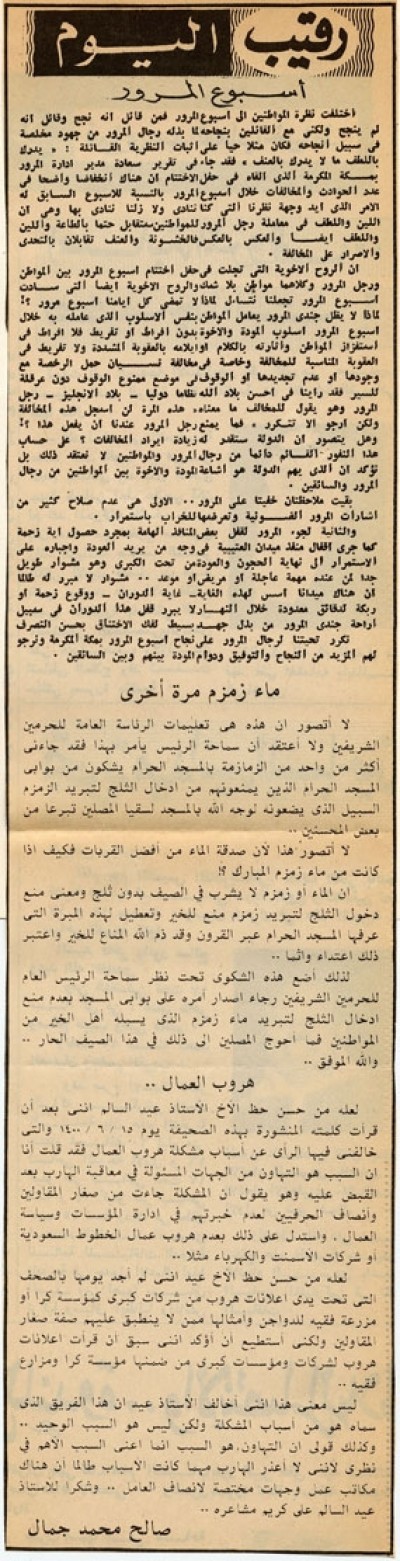 رقيب اليوم
أسبوع المرور
أختلفت نظرة المواطنين الى اسبوع المرور فمن قائل انه نجح وقائل انه
لم ينجح ولكنى مع القائلين بنجاحه لما بذله رجال المرور من جهود مخلصة
فى سبيل انجاحه فكان مثلا حيا على اثبات النظرية القائلة : « يدرك
باللطف ما لا يدرك بالعنف » فقد جاء فى تقرير سعادة مدير ادارة المرور
بمكة المكرمة الذى القاه فى حفل الاختتام ان هناك انخفاضا واضحا فى
عدد الحوادث والمخالفات خلال اسبوع المرور بالنسبة للاسبوع السابق له
الامر الذى ايد وجهة نظرنا التى كنا ننادى ولا زلنا ننادى بها وهى ان
اللين واللطف فى معاملة رجل المرور للمواطنين ستقابل حتما بالطاعة واللين
واللطف ايضا والعكس بالعكس فالخشونة والعنف تقابلان بالتحدى
والاصرار على المخالفة .
ان الروح الاخوية التى تجلت فى حفل اختتام اسبوع المرور بين المواطن
ورجل المرور وكلاهما مواطن بلا شك والروح الاخوية ايضا التى سادت
اسبوع المرور تجعلنا نتساءل لماذا لا تمضى كل ايامنا اسبوع مرور ؟!
لماذا لا يظل جندى المرور يعامل المواطن بنفس الاسلوب الذى عامله به خلال
اسبوع المرور اسلوب المودة والاخوة بدون افراط او تفريط فلا افراط فى
استفزاز المواطن واثارته بالكلام او ايلامه بالعقوبة المشددة ولا تفريط فى
العقوبة المناسبة للمخالفة وخاصة فى مخالفة نسيان حمل الرخصة مع
وجودها او عدم تجديدها او الوقوف فى موضع ممنوع الوقوف دون عرقلة
للسير فقد راينا فى احسن بلاد الله نظاما دوليا - بلاد الانجليز - رجل
المرور وهو يقول للمخالف ما معناه، هذه المرة لن اسجل هذه المخالفة
ولكن ارجو الا تتكرر ، فما يمنع رجل المرور عندنا ان يفعل هذا ؟!
وهل يتصور ان الدولة ستقدر له زيادة ايراد المخالفات ؟ على حساب
هذا النفور القائم دائما من رجال المرور والمواطنين لا نعتقد ذلك بل
نؤكد ان الذى يهم الدولة هو اشاعة المودة والاخوة بين المواطنين من رجال
المرور والسائقين .
بقيت ملاحظتان خفيتا على المرور .. الاولى هى عدم صلاح كثير من
اشارات المرور الضوئية وتعرضها للخراب باستمرار .
والثانية لجوء المرور لقفل بعض المنافذ الهامة بمجرد حصول اية زحمة
كما جرى اقفال منفذ ميدان العتيبية فى وجه من يريد العودة واجباره على
الاستمرار الى نهاية الحجون والعودة من تحت الكبرى وهو مشوار طويل
جدا لمن عنده مهمة عاجلة او مريض او موعد .. مشوار لا مبرر له طالما
ان هناك ميدانا اسس لهذه الغاية - غاية الدوران - ووقوع زحمة او
ربكة لدقائق معدودة خلال النهار لا يبرر قفل هذا الدوران فى سبيل
اراحة جندى المرور من بذل جهد بسيط لفك الاختناق بحسن التصرف
نكرر تحيتنا لرجال المرور على نجاح اسبوع المرور بمكة المكرمة ونرجو
لهم المزيد من النجاح والتوفيق ودوام المودة بينهم وبين السائقين .
ماء زمزم مرة أخرى
لا أتصور ان هذه هى تعليمات الرئاسة العامة للحرمين
الشريفين ولا أعتقد أن سماحة الرئيس يأمر بهذا فقد جاءنى
أكثر من واحد من الزمازمة بالمسجد الحرام يشكون من بوابى
المسجد الحرام الذين يمنعونهم من ادخال الثلج لتبريد الزمزم
السبيل الذى يضعونه لوجه الله بالمسجد لسقيا المصلين تبرعا من
بعض المحسنين ..
لا أتصور هذا لأن صدقة الماء من أفضل القربات فكيف اذا
كانت من ماء زمزم المبارك ؟!
ان الماء أو زمزم لا يشرب فى الصيف بدون ثلج ومعنى منع
دخول الثلج لتبريد زمزم منع للخير وتعطيل لهذه المبرة التى
عرفها المسجد الحرام عبر القرون وقد ذم الله المناع للخير واعتبر
ذلك اعتداء واثما ..
لذلك أضع هذه الشكوى تحت نظر سماحة الرئيس العام
للحرمين الشريفين رجاء اصدار أمره على بوابى المسجد بعدم منع
ادخال الثلج لتبريد ماء زمزم الذى يسبله أهل الخير من
المواطنين فما أحوج المصلين الى ذلك فى هذا الصيف الحار ..
والله الموفق ..
هروب العمال ..
لعله من حسن حظ الأخ الأستاذ عيد السالم اننى بعد أن
قرأت كلمته المنشورة بهذه الصحيفة يوم ١٥ / ٦ / ١٤٠٠ والتى
خالفنى فيها الرأى عن أسباب مشكلة هروب العمال فقد قلت أنا
ان السبب هو التهاون من الجهات المسئولة في معاقبة الهارب بعد
القبض عليه وهو يقول ان المشكلة جاءت من صغار المقاولين
وأنصاف الحرفيين لعدم خبرتهم في ادارة المؤسسات وسياسة
العمال . واستدل على ذلك بعدم هروب عمال الخطوط السعودية
أو شركات الأسمنت والكهرباء مثلا ..
لعله من حسن حظ الأخ عيد اننى لم أجد يومها بالصحف
التى تحت يدى اعلانات هروب من شركات كبرى كمؤسسة كرا أو
مزرعة فقيه للدواجن وأمثالها ممن لا ينطبق عليهم صفة صغار
المقاولين ولكنى أستطيع أن أؤكد اننى سبق ان قرأت اعلانات
هروب لشركات ومؤسسات كبرى من ضمنها مؤسسة كرا ومزارع
فقيه ..
ليس معنى هذا اننى أخالف الأستاذ عيد ان هذا الفريق الذى
سماه هو من أسباب المشكلة ولكن ليس هو السبب الوحيد ..
وكذلك قولى ان التهاون هو السبب انما اعنى السبب الأهم في
نظرى لاننى لا أعذر الهارب مهما كانت الأسباب طالما أن هناك
مكاتب عمل وجهات مختصة لانصاف العامل .. وشكرا للأستاذ
عيد السالم على كريم مشاعره ..
صالح محمد جمال